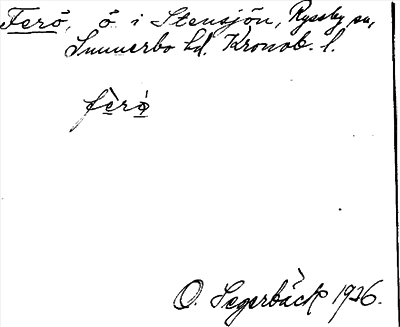 Ferö, ö i Stensjön, Ryssby sn,
Sunnerbo hd. Kronob. l.
fèrǿ
O. Segerbäck 1936.